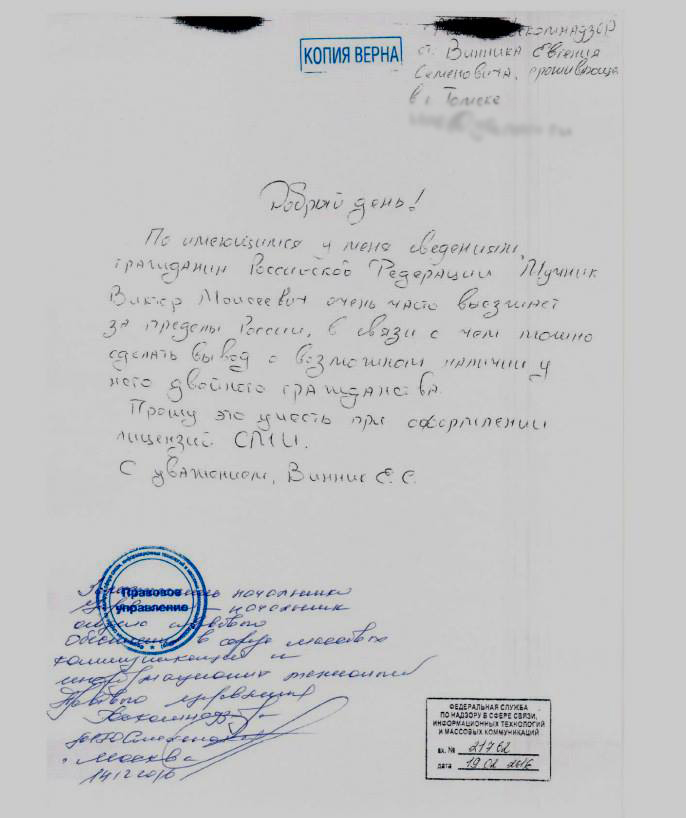 КОПИЯ ВЕРНА
от Винника Евгения
Семеновича, проживающе
в г Томске
Добрый день!
По имеющимся у меня сведениям,
гражданин Российской Федерации Мучник
Виктор Моисеевич очень часто выезжает
за пределы России, в связи с чем можно
сделать вывод о возможном наличии у
него двойного гражданства.
Прошу это учесть при оформлении
лицензий СМИ.
С уважением, Винник Е. С.
Правовое
управление
начальника
начальник
отдела правового
в сфере массовых
коммуникаций и
информационных технологий
Правового управления
Роскомнадзора
г. Москва
ФЕДЕРАЛЬНАЯ СЛУЖБА
ПО НАДЗОРУ В СФЕРЕ СВЯЗИ,
ИНФОРМАЦИОННЫХ ТЕХНОЛОГИЙ
И МАССОВЫХ КОММУНИКАЦИЙ
вх. № 21762
дата 19 02 2016